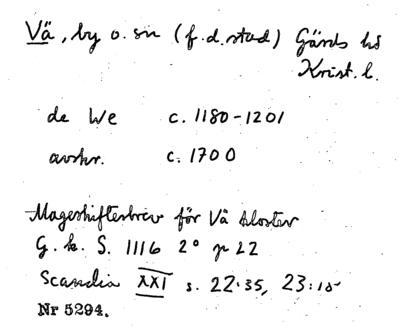 Vä, by o. sn (f.d. stad) Gärds hd
Krist. l.
de We c. 1180-1201
avskr. c. 1700
Mageskiftesbrev för Vä kloster
G. k. S. 1116 2° p 22
Scandia XXI s. 22:35, 23:18
Nr 5294.